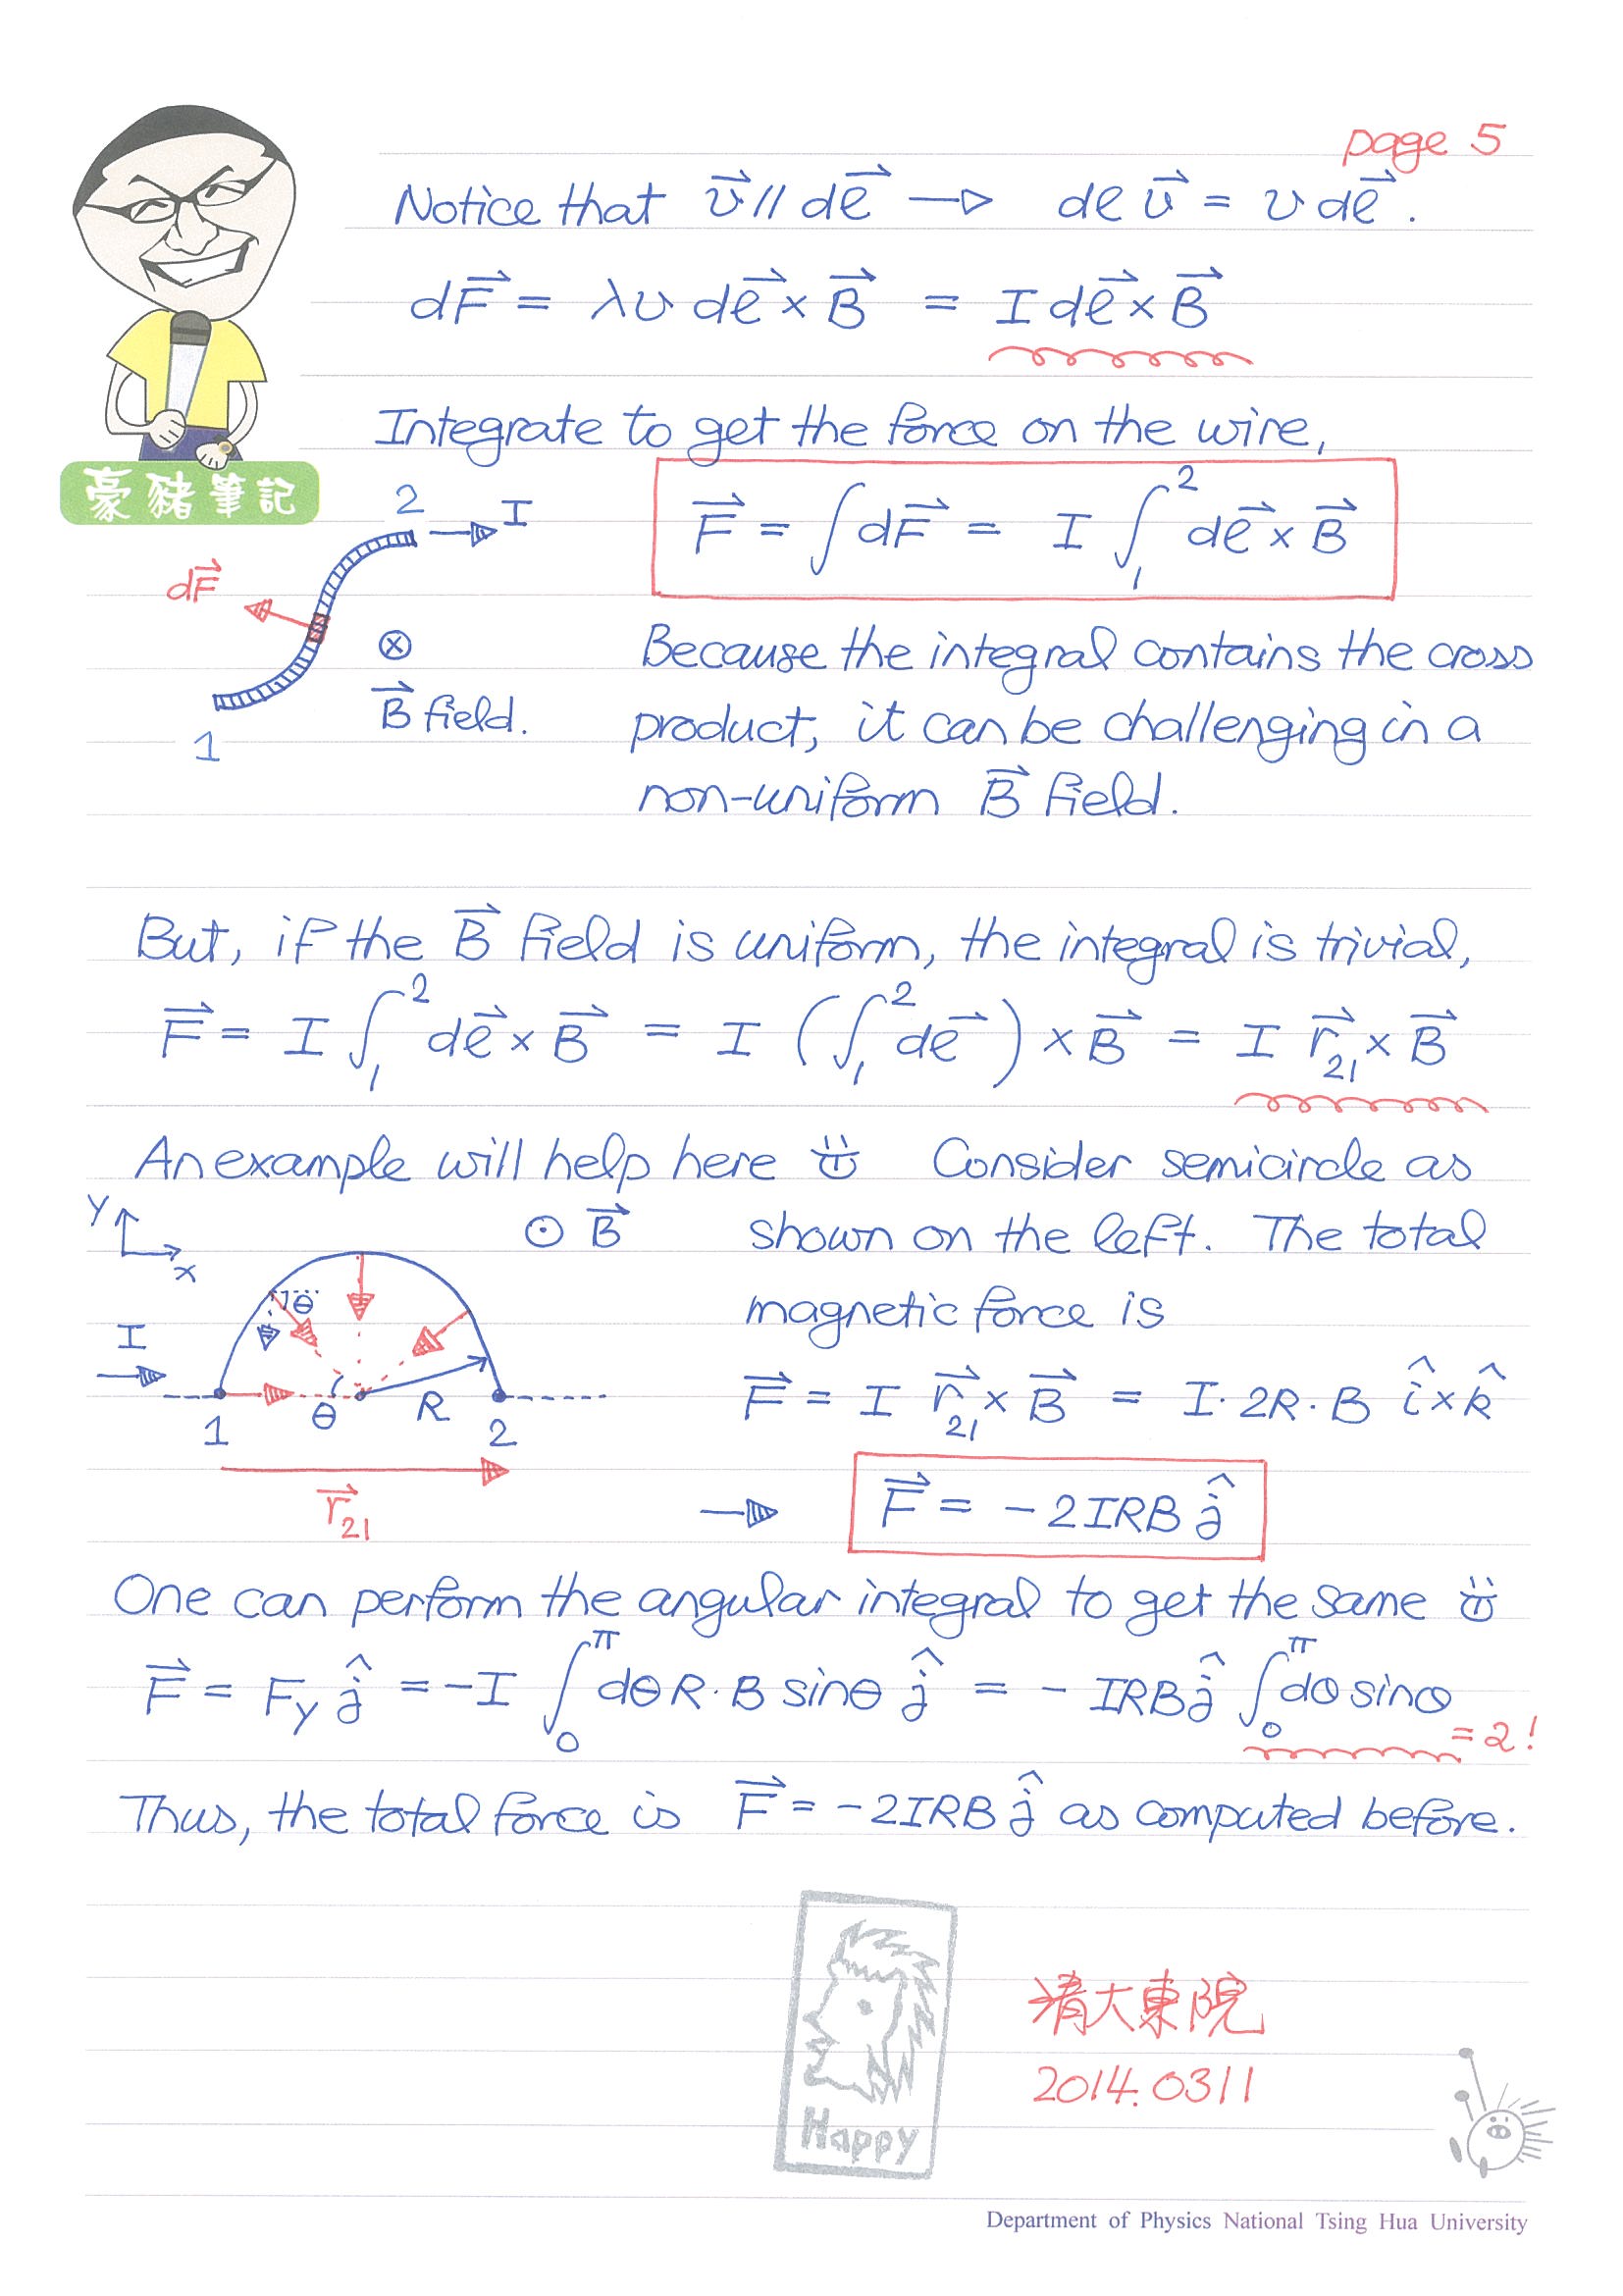 page 5
Notice that v⃗ // dℓ⃗ → dℓ v⃗ = v dℓ⃗.
dF⃗ = λv dℓ⃗ × B⃗ = I dℓ⃗ × B⃗
Integrate to get the force on the wire,
豪豬筆記
F⃗ = ∫dF⃗ = I ∫₁² dℓ⃗ × B⃗
2 → I
dF⃗
⊗
B⃗ field.
1
Because the integral contains the cross
product, it can be challenging in a
non-uniform B⃗ field.
But, if the B⃗ field is uniform, the integral is trivial,
F⃗ = I ∫₁² dℓ⃗ × B⃗ = I (∫₁² dℓ⃗) × B⃗ = I r⃗₂₁ × B⃗
An example will help here Consider semicircle as
shown on the left. The total
magnetic force is
y
x
⊙ B⃗
θ
I
1 θ R 2
r⃗₂₁
F⃗ = I r⃗₂₁ × B⃗ = I · 2R · B î × k̂
→ F⃗ = -2IRB ĵ
One can perform the angular integral to get the same
F⃗ = Fy ĵ = -I ∫₀^π dθ R · B sinθ ĵ = - IRB ĵ ∫₀^π dθ sinθ = 2!
Thus, the total force is F⃗ = -2IRB ĵ as computed before.
Happy
清大東院
2014.0311
Department of Physics National Tsing Hua University